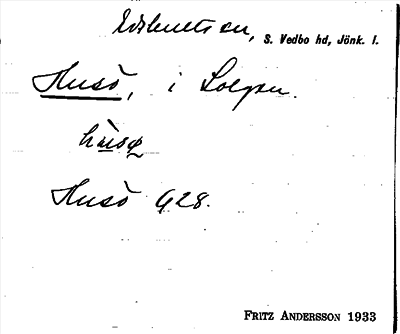 Edshults sn, S. Vedbo hd, Jönk. l.
Husö, i Solgen.
hùsø
Husö G28.
FRITZ ANDERSSON 1933